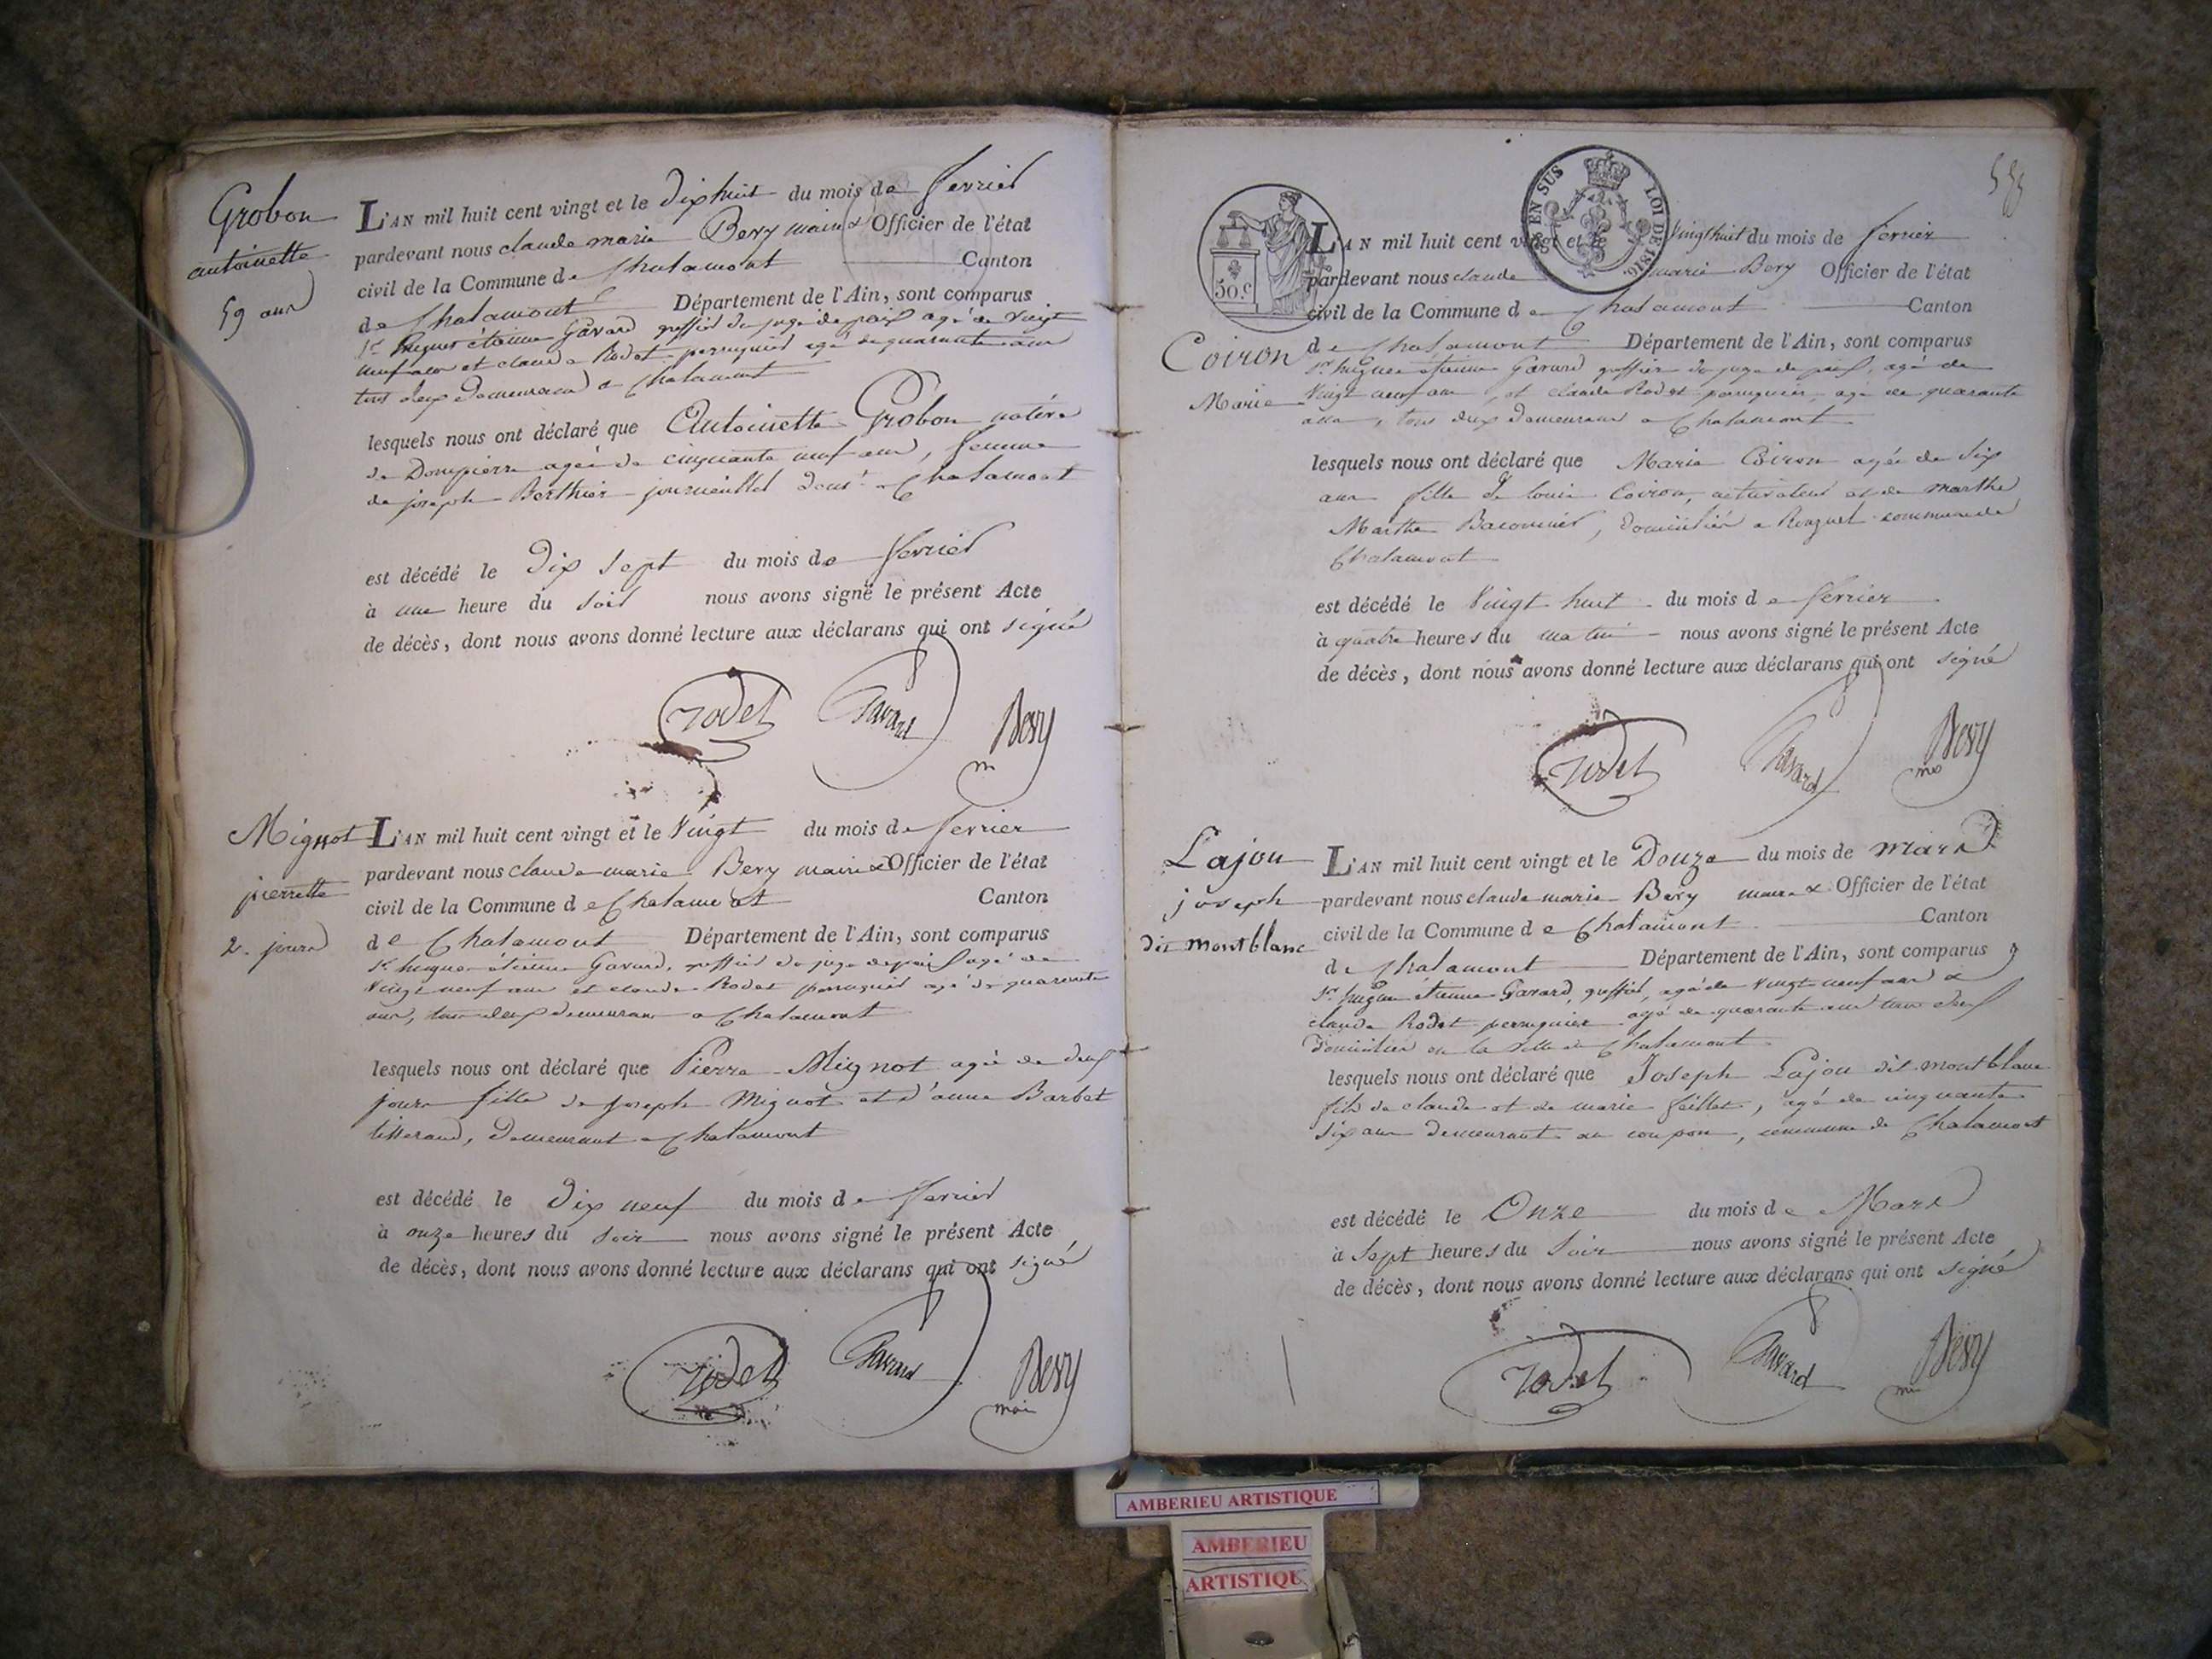 Grobon
antoinette
59 ans
L'AN mil huit cent vingt et le dixhuit du mois de fevrier
pardevant nous claude marie Bevy maire & Officier de l'état
civil de la Commune de Chalamont Canton
de Chalamont Département de l'Ain, sont comparus
Sr hugues étienne Gavard greffier du juge de paix agé de vingt
neuf ans et claude Rodet perruquier agé de quarante ans
tous deux demeurans a Chalamont
lesquels nous ont déclaré que Antoinette Grobon native
de Dompierre agée de cinquante neuf ans, femme
de joseph Berthier journallier demt a Chalamont
est décédé le dix sept du mois de fevrier
à une heure du soir nous avons signé le présent Acte
de décès, dont nous avons donné lecture aux déclarans qui ont signé
Rodet Gavard Bevy
m
Mignot
pierrette
2. jours
L'AN mil huit cent vingt et le vingt du mois de fevrier
pardevant nous claude marie Bevy maire & Officier de l'état
civil de la Commune de Chalamont Canton
de Chalamont Département de l'Ain, sont comparus
Sr hugues étienne Gavard, greffier du juge de paix agé de
vingt neuf ans et claude Rodet perruquier agé de quarante
ans, tous deux demeurans a Chalamont
lesquels nous ont déclaré que Pierre Mignot agée de deux
jours fille de joseph Mignot et d'anne Barbet
tisserand, demeurant a Chalamont
est décédé le dix neuf du mois de fevrier
à onze heures du soir nous avons signé le présent Acte
de décès, dont nous avons donné lecture aux déclarans qui ont signé
Rodet Gavard Bevy
mai
EN SUS LOI DE
50.c
Coiron
Marie
L'AN mil huit cent vingt et le vingthuit du mois de fevrier
pardevant nous claude marie Bevy Officier de l'état
civil de la Commune de Chalamont Canton
de Chalamont Département de l'Ain, sont comparus
Sr hugues étienne Gavard greffier du juge de paix, agé de
vingt neuf ans, et claude Rodet perruquier, agé de quarante
ans, tous deux demeurans a Chalamont
lesquels nous ont déclaré que Marie Coiron agée de dix
ans fille de louis Coiron, cultivateur et de marthe
Marthe domiciliés a commune de
Chalamont
est décédé le vingt huit du mois de fevrier
à quatre heures du matin nous avons signé le présent Acte
de décès, dont nous avons donné lecture aux déclarans qui ont signé
Rodet Gavard Bevy
Lajou
joseph
dit montblanc
L'AN mil huit cent vingt et le Douze du mois de mars
pardevant nous claude marie Bevy maire & Officier de l'état
civil de la Commune de Chalamont Canton
de Chalamont Département de l'Ain, sont comparus
Sr hugues étienne Gavard, greffier, agé de vingt neuf ans &
claude Rodet perruquier agé de quarante ans tous deux
domiciliés en la ville de Chalamont
lesquels nous ont déclaré que Joseph Lajou dit montblanc
fils de claude et de marie feillet, agé de cinquante
six ans demeurant au coupon, commune de Chalamont
est décédé le Onze du mois de Mars
à sept heures du soir nous avons signé le présent Acte
de décès, dont nous avons donné lecture aux déclarans qui ont signé
Rodet Gavard Bevy
AMBERIEU ARTISTIQUE
AMBERIEU
ARTISTIQU